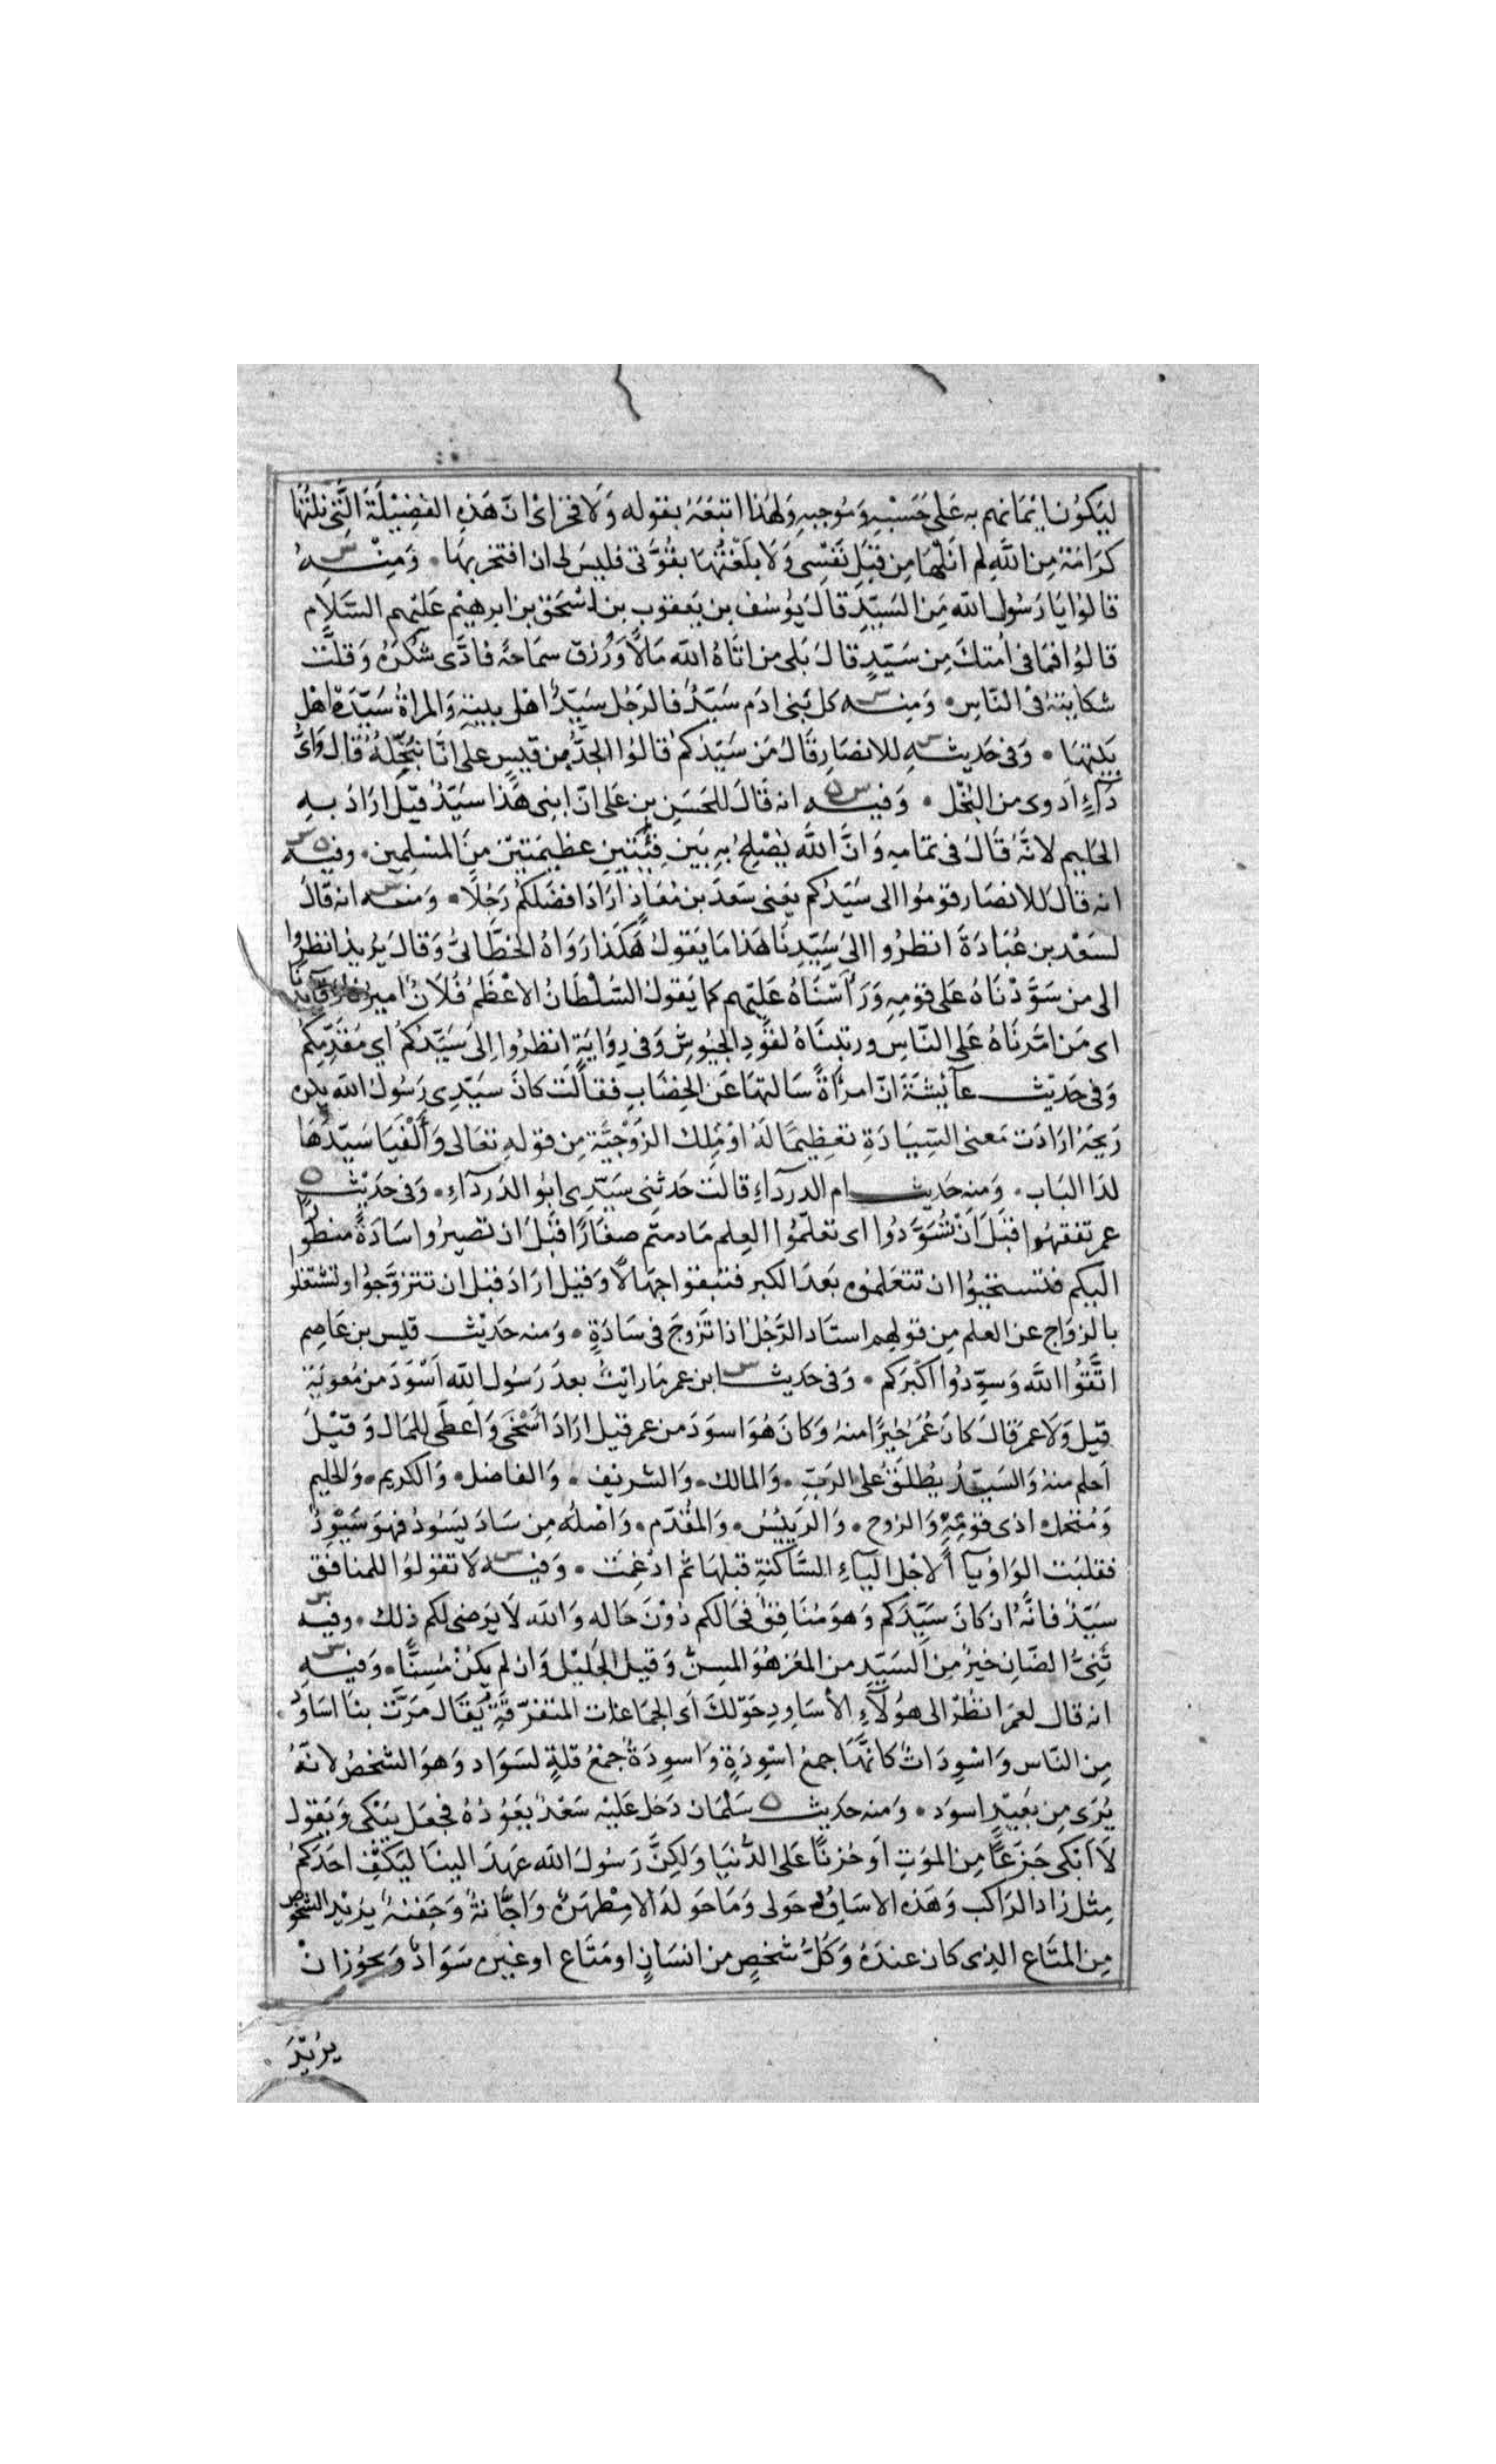 ليكون ايمانهم به على حسبه وموجبه ولهذا اتبعه بقوله ولا فخر اى ان هذه الفضيلة التى نلتها
كرامة من الله لم انلها من قبل نفسى ولا بلغتها بقوتى فليس لى ان افتخر بها ۰ ومنه س
قالوا يا رسول الله من السيد قال يوسف بن يعقوب بن اسحق بن ابرهيم عليهم السلام
قالوا فما فى امتك من سيد قال بلى من اتاه الله مالا ورزق سماحة فادى شكره وقلت
شكايته فى الناس ۰ ومنه س كل بنى ادم سيد فالرجل سيد اهل بيته والمراة سيدة اهل
بيتها ۰ وفى حديثه س للانصار قال من سيدكم قالوا الجد بن قيس على انا نبخله قال واى
داء ادوى من البخل ۰ وفيه س ن انه قال للحسن بن على ان ابنى هذا سيد قيل اراد به
الحليم لانه قال فى تمامه وان الله يصلح به بين فئتين عظيمتين من المسلمين ۰ وفيه ن س
انه قال للانصار قوموا الى سيدكم يعنى سعد بن معاذ اراد افضلكم رجلا ۰ ومنه س انه قال
لسعد بن عبادة انظروا الى سيدنا هذا ما يقول هكذا رواه الخطابى وقال يريد انظروا
الى من سودناه على قومه ورأسناه عليهم كما يقول السلطان الاعظم فلان اميرنا وقايدنا
اى من امرناه على الناس ورتبناه لقود الجيوش وفى رواية انظروا الى سيدكم اي مقدمكم
وفى حديث عآئشة ان امرأة سالتها عن الخضاب فقالت كان سيدى رسول الله يكره
ريحه ارادت معنى السيادة تعظيما له او ملك الزوجية من قوله تعالى وألفيا سيدها
لدا الباب ۰ ومنه حديث ام الدردآء قالت حدثنى سيدى ابو الدردآء ۰ وفى حديث ن
عمر تفقهوا قبل أن تسودوا اى تعلموا العلم ما دمتم صغارا قبل ان تصيروا سادة منظورا
اليكم فتستحيوا ان تتعلموه بعد الكبر فتبقوا جهالا وقيل اراد قبل ان تتزوجوا وتشتغلوا
بالزواج عن العلم من قولهم استاد الرجل اذا تزوج فى سادة ۰ ومنه حديث قيس بن عاصم
اتقوا الله وسودوا اكبركم ۰ وفى حديث س ابن عمر ما رايت بعد رسول الله اسود من معوية
قيل ولا عمر قال كان عمر خيرا منه وكان هو اسود من عمر قيل اراد اسخى واعطى للمال وقيل
احلم منه والسيد يطلق على الرب ۰ والمالك ۰ والشريف ۰ والفاضل ۰ والكريم ۰ والحليم
ومتحمل اذى قومه والزوج ۰ والرييس ۰ والمقدم ۰ واصله من ساد يسود فهو سيود
فقلبت الواو يآ لاجل اليآء الساكنة قبلها ثم ادغمت ۰ وفيه س لا تقولوا للمنافق
سيد فانه ان كان سيدكم وهو منافق فحالكم دون حاله والله لا يرضى لكم ذلك ۰ وفيه س
ثنى الضان خير من السيد من المعز هو المسن وقيل الجليل وان لم يكن مسنا ۰ وفيه س
انه قال لعمر انظر الى هؤلآء الأساود حولك اى الجماعات المتفرقة يقال مرت بنا اساود
من الناس واسودات كانها جمع اسودة واسودة جمع قلة لسواد وهو الشخص لانه
يرى من بعيد اسود ۰ ومنه حديث ن سلمان دخل عليه سعد يعوده فجعل يبكى ويقول
لا ابكى جزعا من الموت او حزنا على الدنيا ولكن رسول الله عهد الينا ليكف احدكم
مثل زاد الراكب وهذه الاساود حولى وما حوله الا مطهرة واجانة وجفنة يريد الشخوص
من المتاع الذى كان عنده وكل شخص من انسان او متاع او غيره سواد ويجوز ان
يريد